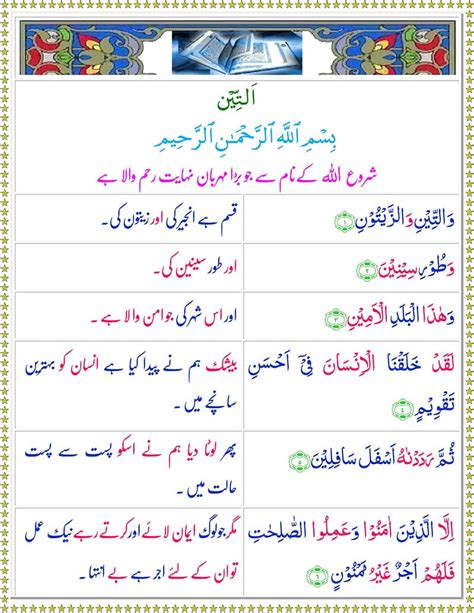 اَلتِّيْن
بِسْمِ ٱللَّهِ ٱلرَّحْمَـٰنِ ٱلرَّحِيمِ
شروع اللہ کے نام سے جو بڑا مہربان نہایت رحم والا ہے
وَالتِّيْنِ وَالزَّيْتُوْنِ ۱
قسم ہے انجیر کی اور زیتون کی۔
وَطُوْرِ سِيْنِيْنَ ۲
اور طور سینین کی۔
وَهٰذَا الْبَلَدِ الْاَمِيْنِ ۳
اور اس شہر کی جو امن والا ہے۔
لَقَدْ خَلَقْنَا الْاِنْسَانَ فِىْۤ اَحْسَنِ
تَقْوِيْمٍ ۴
بیشک ہم نے پیدا کیا ہے انسان کو بہترین
سانچے میں۔
ثُمَّ رَدَدْنٰهُ اَسْفَلَ سَافِلِيْنَ ۵
پھر لوٹا دیا ہم نے اسکو پست سے پست
حالت میں۔
اِلَّا الَّذِيْنَ اٰمَنُوْا وَعَمِلُوا الصّٰلِحٰتِ
فَلَهُمْ اَجْرٌ غَيْرُ مَمْنُوْنٍ ۶
مگر جو لوگ ایمان لائے اور کرتے رہے نیک عمل
تو ان کے لئے اجر ہے بے انتہا۔